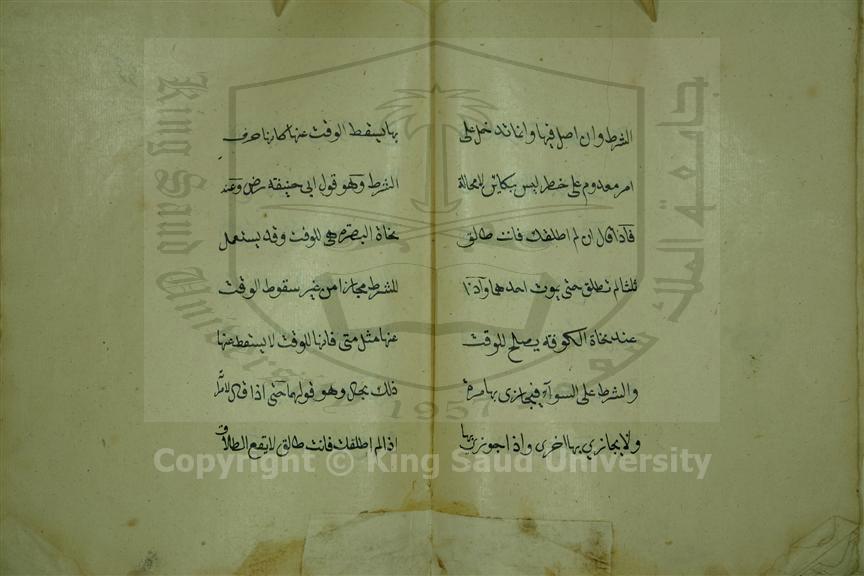 الشرط وان اصل فيها وانما تدخل على
امر معدوم على خطر ليس بكائن لا محالة
فاذا قال ان لم اطلقك فانت طالق
ثلثا لم تطلق حتى يموت احدهما واذا
عند نحاة الكوفة يصلح للوقت
والشرط على السواء فيجازى بها مرة
ولا يجازي بها اخرى واذا جوزي بها
بها يسقط الوقت عنها كانها حرف
الشرط وهو قول ابى حنيفة رض وعند
نحاة البصرة هى للوقت وقد يستعمل
للشرط مجازا من غير سقوط الوقت
عنها مثل متى فانها للوقت لا يسقط عنها
ذلك بحال وهو قولهما حتى اذا قال لامرأته
اذا لم اطلقك فانت طالق لا يقع الطلاق
King Saud University
جامعة الملك سعود
1957
Copyright © King Saud University